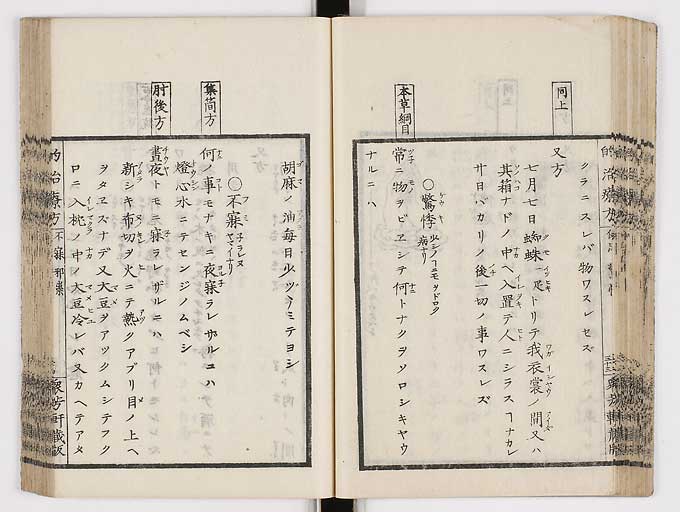 同上
クラニスレバ物ワスレセズ
又方
七月七日蜘蛛一疋トリテ我衣裳ノ間又ハ
其箱ナドノ中ヘ入置テ人ニシラスヿナカレ
廿日バカリノ後一切ノ事ワスレズ
○驚悸
少シノヿニモヲドロク
病ナリ
本草綱目
常ニ物ヲビヱシテ何トナクヲソロシキヤウ
ナルニハ
胡麻ノ油毎日少ヅヽノミテヨシ
○不寐
子ラレヌ
ヤマイナリ
集簡方
何ノ事モナキニ夜寐ラレザルニハ
燈心水ニテセンジノムベシ
肘後方
晝夜トモニ寐ラレザルニハ
新シキ布切ヲ火ニテ熱クアブリ目ノ上ヘ
ヲタヱズナデ又大豆ヲアツクムシテフク
ロニ入桃ノ中ノ大豆冷レバ又カヘテアタ
的治療方
不寐